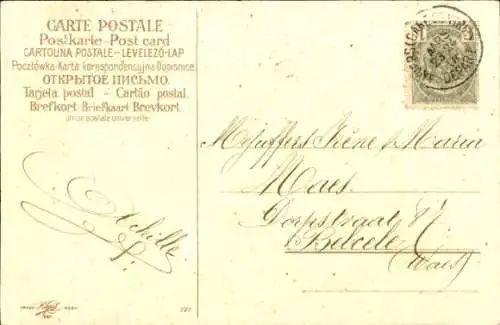 CARTE POSTALE
Postkarte-Post card
CARTOLINA POSTALE-LEVELEZŐ-LAP
Pocztówka-Karta korespondencyjna-Dopisnice
ОТКРЫТОЕ ПИСЬМО.
Tarjeta postal - Cartão postal.
Brefkort-Briefkaart Brevkort.
Union postale universelle
Achille
Mejuffers Irène & Maria
Maes.
Dorpstraat 87
Belcele
(Waes)
727